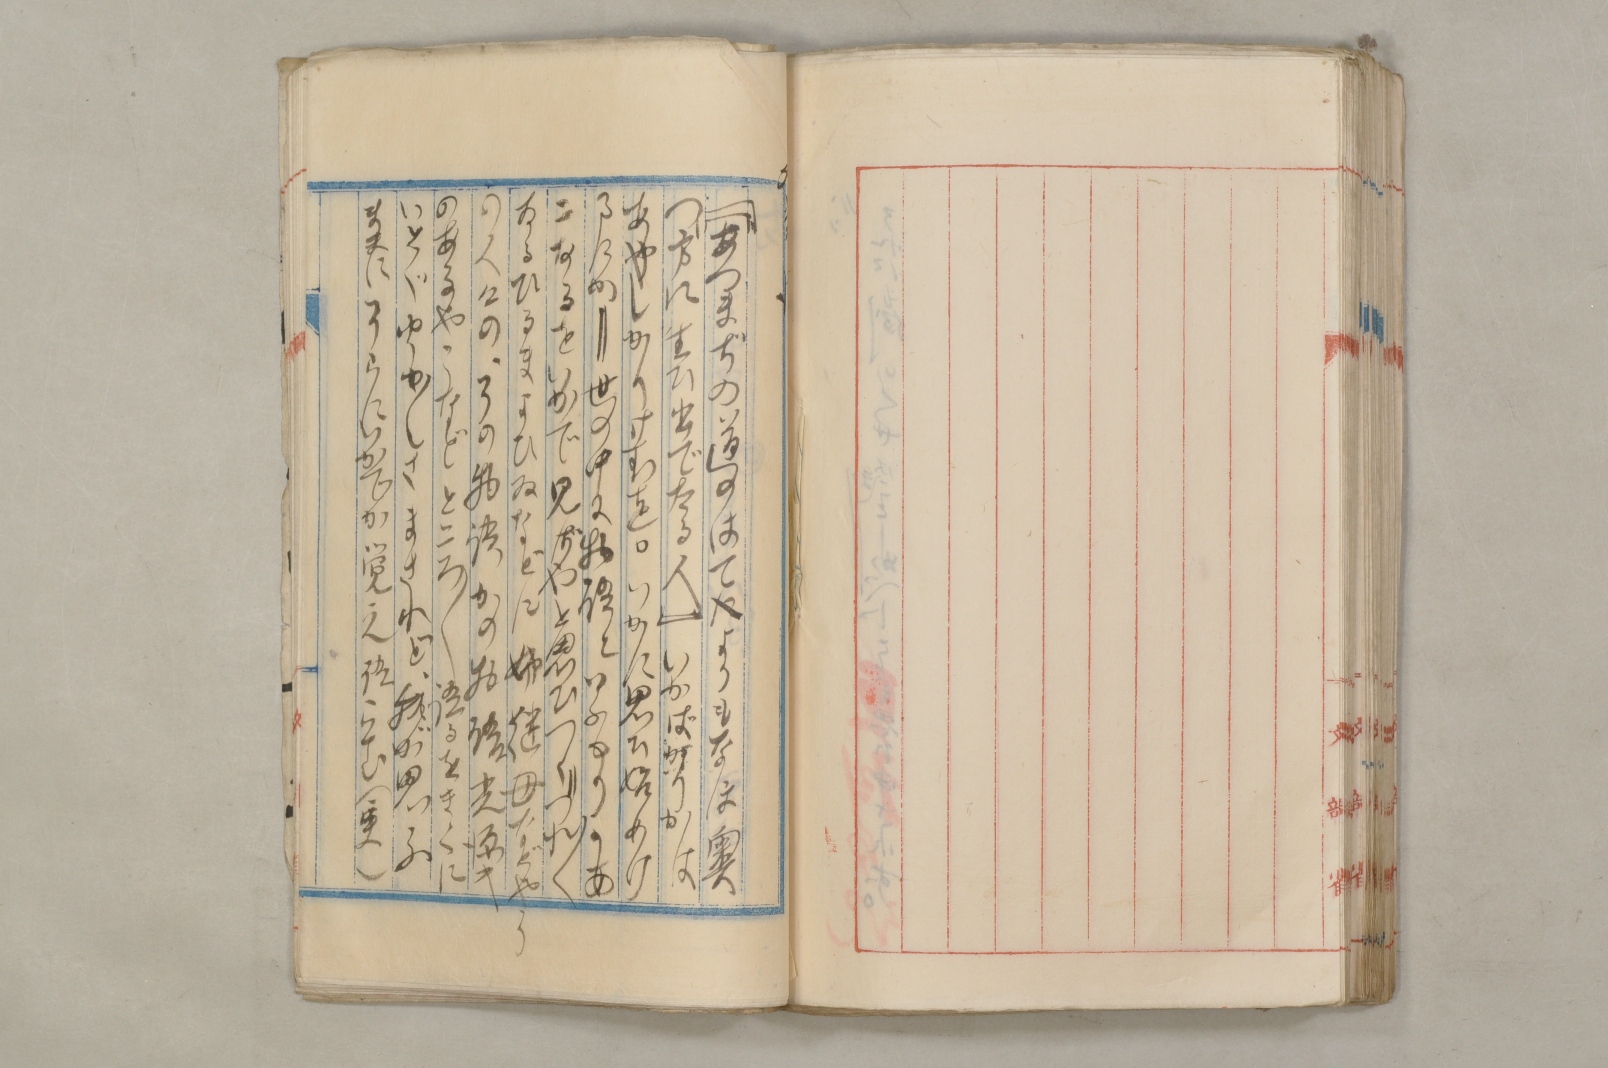 「あづまぢの道のはてよりもなほ奥
つ方に生ひ出でたる人」いかばかりかは
あやしかりけむを。いかに思ひ始めけ
る事にか世の中に物語といふものゝあ
ンなるをいかで見ばやと思ひつゝつれ／＼
なるひるまよひゐなどに姉継母などやう
の人々の、その物語かの物語光源氏
のあるやうなどところ／＼語るをきくに
いとゞゆかしさまされど、我が思ふ
まゝにそらにいかでか覚え語らむ